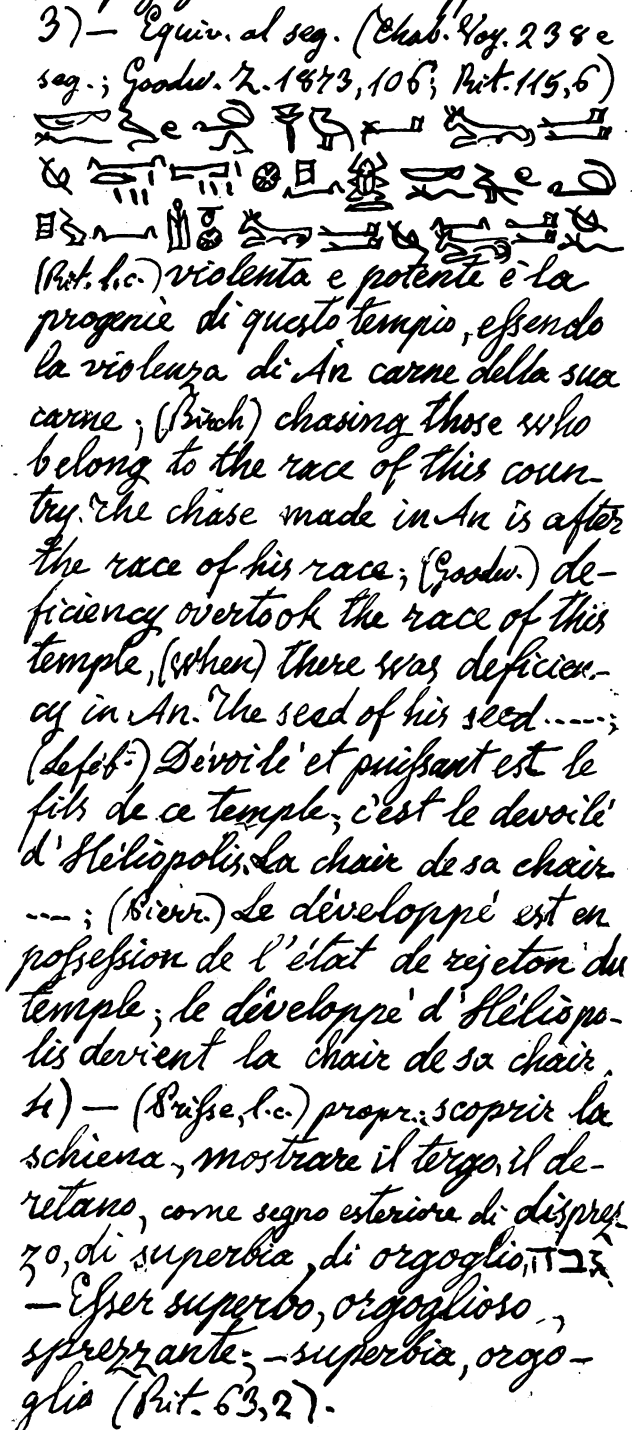 3) — Equiv. al seg. (Chab. Voy. 238 e
seg.; Goodw. Z. 1873, 106; Rit. 115,6)
(Rit. l.c.) violenta e potente è la
progenie di questo tempio, essendo
la violenza di An carne della sua
carne; (Birch) chasing those who
belong to the race of this coun-
try. The chase made in An is after
the race of his race; (Goodw.) de-
ficiency overtook the race of this
temple, (when) there was deficien-
cy in An. The seed of his seed .....;
(Leféb.) Dévoilé et puissant est le
fils de ce temple; c'est le devoilé
d'Héliopolis. La chair de sa chair
---; (Pierr.) Le développé est en
possession de l'état de rejeton du
temple; le développé d'Héliopo-
lis devient la chair de sa chair.
4) — (Prisse, l.c.) propr.: scoprir la
schiena, mostrare il tergo, il de-
retano, come segno esteriore di disprez-
zo, di superbia, di orgoglio, גבה
— Esser superbo, orgoglioso,
sprezzante; — superbia, orgo-
glio (Rit. 63,2).